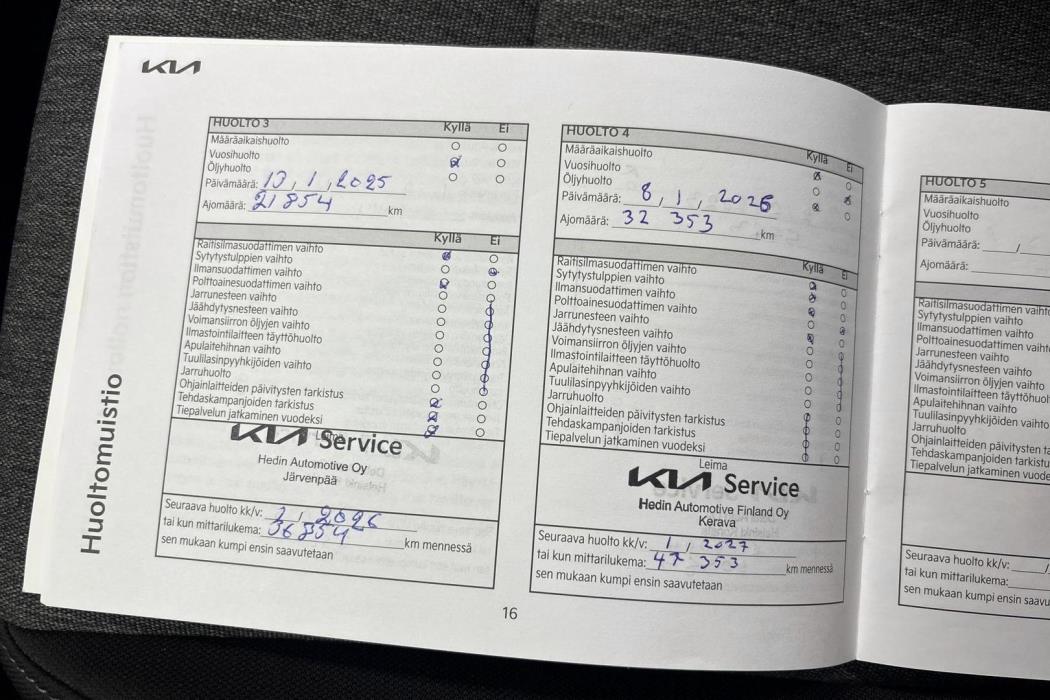 KIA
Huoltomuistio
HUOLTO 3 Kyllä Ei
Määräaikaishuolto
Vuosihuolto
Öljyhuolto
Päivämäärä: 13,1,2025
Ajomäärä: 21854 km
Kyllä Ei
Raitisilmasuodattimen vaihto
Sytytystulppien vaihto
Ilmansuodattimen vaihto
Polttoainesuodattimen vaihto
Jarrunesteen vaihto
Jäähdytysnesteen vaihto
Voimansiirron öljyjen vaihto
Ilmastointilaitteen täyttöhuolto
Apulaitehihnan vaihto
Tuulilasinpyyhkijöiden vaihto
Jarruhuolto
Ohjainlaitteiden päivitysten tarkistus
Tehdaskampanjoiden tarkistus
Tiepalvelun jatkaminen vuodeksi
Leima
KIA Service
Hedin Automotive Oy
Järvenpää
Seuraava huolto kk/v: 1, 2026
tai kun mittarilukema: 36854 km mennessä
sen mukaan kumpi ensin saavutetaan
HUOLTO 4 Kyllä Ei
Määräaikaishuolto
Vuosihuolto
Öljyhuolto
Päivämäärä: 8,1, 2026
Ajomäärä: 32 353 km
Kyllä Ei
Raitisilmasuodattimen vaihto
Sytytystulppien vaihto
Ilmansuodattimen vaihto
Polttoainesuodattimen vaihto
Jarrunesteen vaihto
Jäähdytysnesteen vaihto
Voimansiirron öljyjen vaihto
Ilmastointilaitteen täyttöhuolto
Apulaitehihnan vaihto
Tuulilasinpyyhkijöiden vaihto
Jarruhuolto
Ohjainlaitteiden päivitysten tarkistus
Tehdaskampanjoiden tarkistus
Tiepalvelun jatkaminen vuodeksi
Leima
KIA Service
Hedin Automotive Finland Oy
Kerava
Seuraava huolto kk/v: 1, 2027
tai kun mittarilukema: 47 353 km mennessä
sen mukaan kumpi ensin saavutetaan
16
HUOLTO 5
Määräaikaishuolto
Vuosihuolto
Öljyhuolto
Päivämäärä: /
Ajomäärä:
Raitisilmasuodattimen vaihto
Sytytystulppien vaihto
Ilmansuodattimen vaihto
Polttoainesuodattimen vaiht
Jarrunesteen vaihto
Jäähdytysnesteen vaihto
Voimansiirron öljyjen vaihto
Ilmastointilaitteen täyttöhuol
Apulaitehihnan vaihto
Tuulilasinpyyhkijöiden vaihto
Jarruhuolto
Ohjainlaitteiden päivitysten ta
Tehdaskampanjoiden tarkistu
Tiepalvelun jatkaminen vuode
Seuraava huolto kk/v: /
tai kun mittarilukema:
sen mukaan kumpi ensin saavu